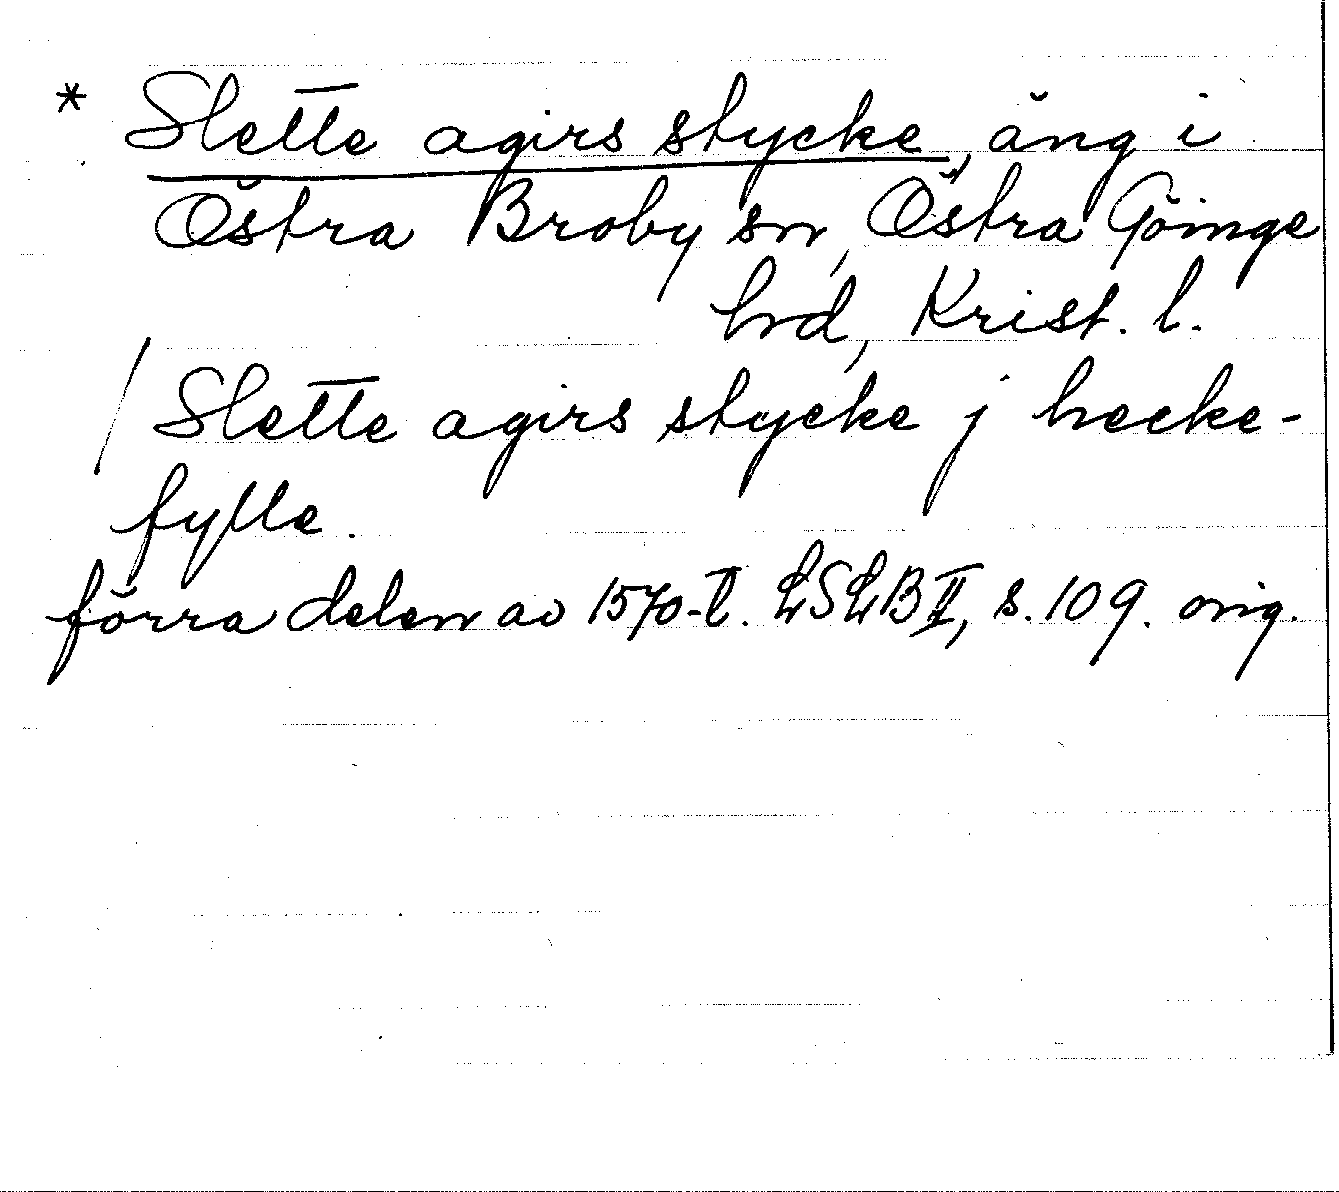 * Slette agirs stycke, äng i
Östra Broby sn, Östra Göinge
hrd, Krist. l.
/ Slette agirs stycke j hecke-
fylle.
förra delen av 1570-t. LSLB II, s. 109. orig.